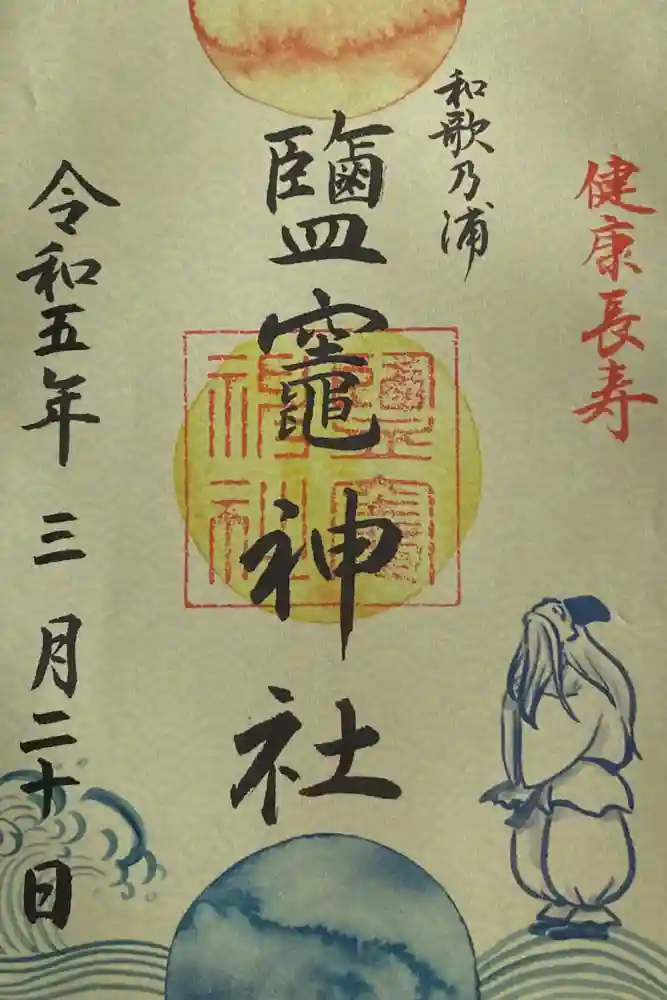 健康長寿
和歌乃浦
鹽竈神社
令和五年 三月二十日